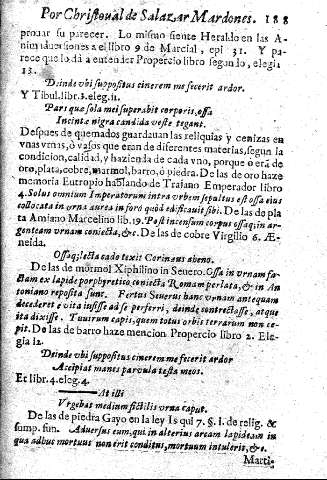 Por Christoual de Salazar Mardones. 188
prouar su parecer. Lo mismo siente Heraldo en las A-
nimaduersiones a el libro 9 de Marcial, epi 31. Y pare
ce que lo da a entender Propercio libro segundo, elegia
13.
Deinde vbi suppositus cinerem me fecerit ardor.
Y Tibul. libr. 3. eleg. 11.
Pars que sola mei superabit corporis, ossa
Incinctæ nigra candida veste tegant.
Despues de quemados guardauan las reliquias y cenizas en
vnas vrnas, ò vasos que eran de diferentes materias, segun la
condicion, calidad, y hazienda de cada vno, porque ò erã de
oro, plata, cobre, marmol, barro, ò piedra. De las de oro haze
memoria Eutropio hablando de Traiano Emperador libro
4. Solus omnium Imperatorum intra vrbem sepultus est ossa eius
collocata in vrna aurea in foro quod ædificauit sibi. De las de pla
ta Amiano Marcelino lib. 19. Post incensum corpus ossaq; in ar-
genteam vrnam coniecta, &c. De las de cobre Virgilio 6. Æ-
neida.
Ossaq; lecta cado texit Corineus aheno.
De las de mormol Xiphilino in Seuero. Ossa in vrnam fac-
tam ex lapide porphyretico coniecta Romam perlata, & in An
toniano reposita sunt. Fertus Seuerus hanc vrnam antequam
decederet e vita iussisse ad se perferri, deinde contrectasse, atque
ita dixisse. Tu virum capis, quem totus orbis terrarum non ce-
pit. De las de barro haze mencion Propercio libro 2. Ele-
gia 12.
Deinde vbi suppositus cinerem me fecerit ardor
Accipiat manes paruula testa meos.
Et libr. 4. eleg. 4.
At illi
Vrgebat medium fictilis vrna caput.
De las de piedra Gayo en la ley Is qui 7. §. 1. de relig. &
sump. fun. Aduersus eum, qui in alterius arcam lapideam in
qua adhuc mortuus non erit conditus, mortuum intulerit, &c.
Marti-